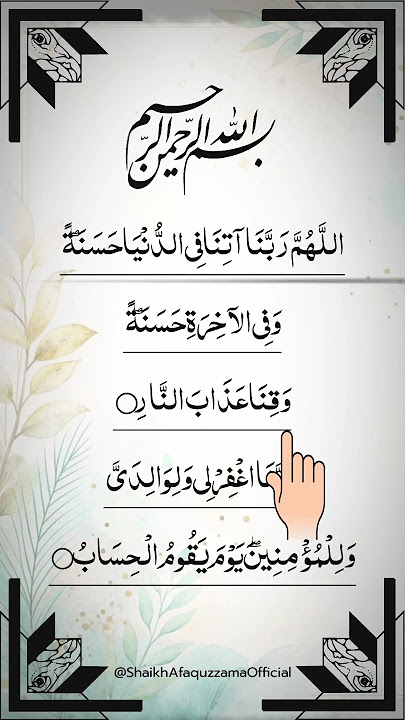 بسم الله الرحمن الرحيم
اللَّهُمَّ رَبَّنَا آتِنَا فِي الدُّنْيَا حَسَنَةً
وَفِي الْآخِرَةِ حَسَنَةً
وَقِنَا عَذَابَ النَّارِ
اغْفِرْ لِي وَلِوَالِدَيَّ
وَلِلْمُؤْمِنِينَ يَوْمَ يَقُومُ الْحِسَابُ
@ShaikhAfaquzzamaOfficial